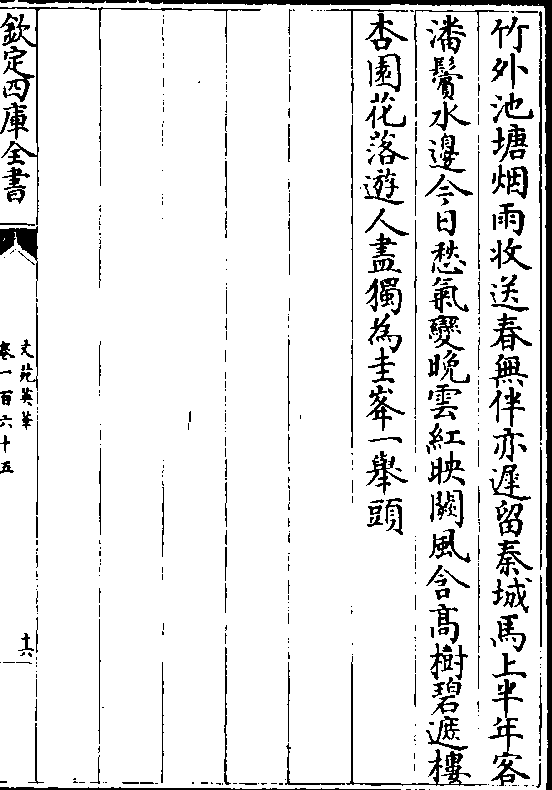 竹外池塘烟雨收送春無伴亦遲留秦城馬上半年客
潘鬢水邊今日愁氣變晚雲紅映闕風含髙樹碧遮樓
杏園花落遊人盡獨為圭峯一舉頭
欽定四庫全書
文苑英華
卷一百六十五
十六